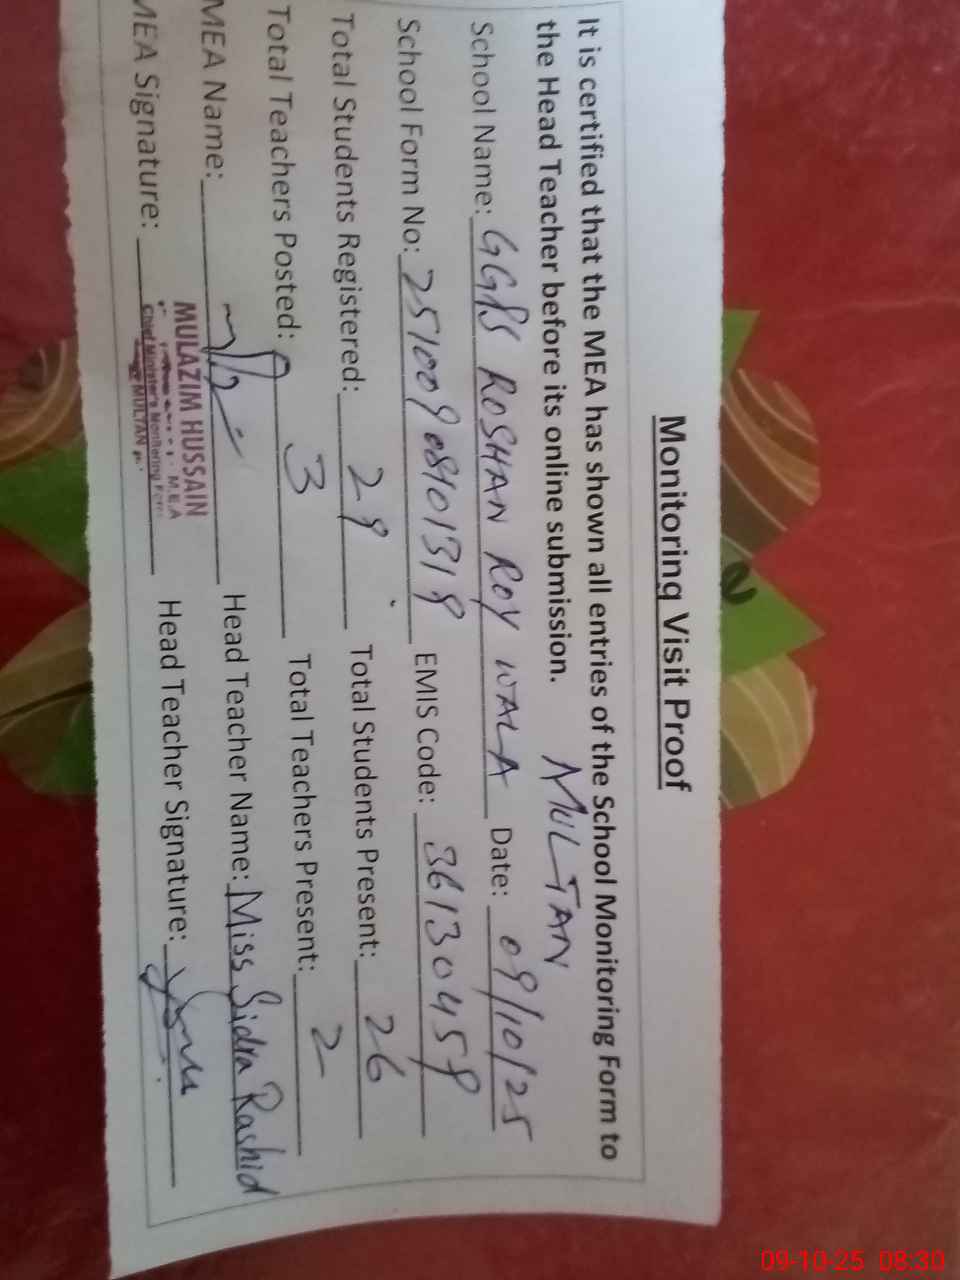 Monitoring Visit Proof
It is certified that the MEA has shown all entries of the School Monitoring Form to
the Head Teacher before its online submission.
MULTAN
School Name: GGPS ROSHAN ROY WALA Date: 09/10/25
School Form No: EMIS Code:
Total Students Registered: 29 Total Students Present: 26
Total Teachers Posted: 3 Total Teachers Present: 2
MEA Name: Head Teacher Name: Miss Sidra Rashid
MULAZIM HUSSAIN
M.E.A
Chief Minister's Monitoring Force
MULTAN
MEA Signature: Head Teacher Signature:
09-10-25 08:30